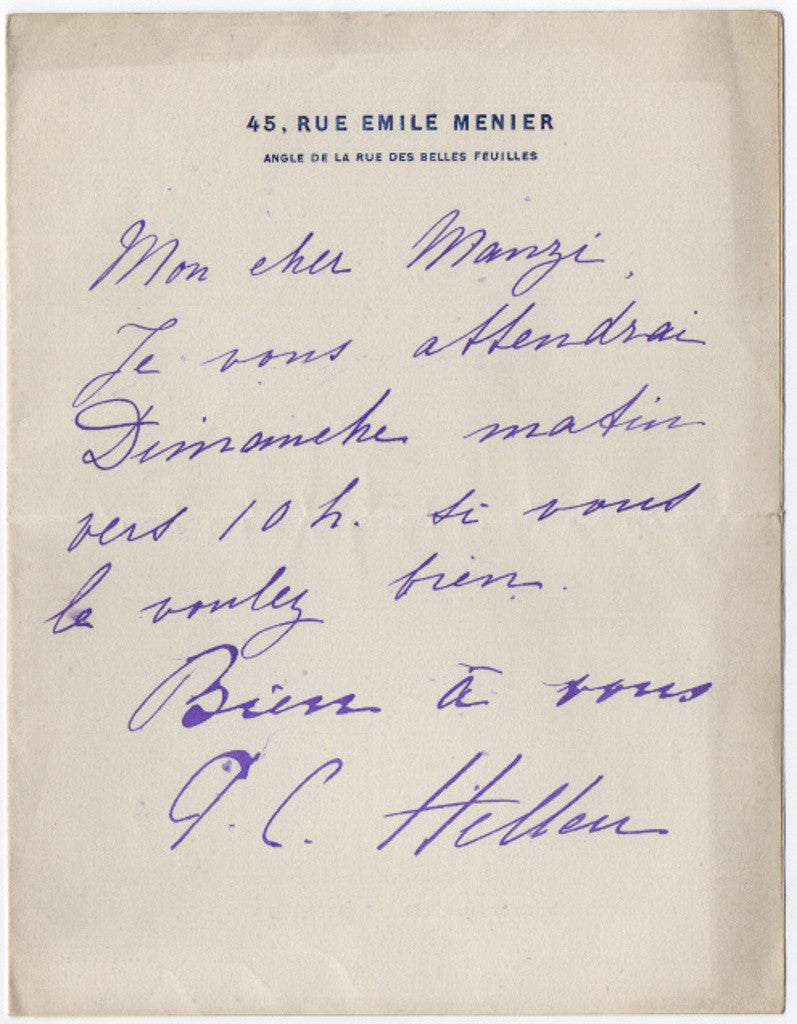 45, RUE EMILE MENIER
ANGLE DE LA RUE DES BELLES FEUILLES
Mon cher Manzi,
Je vous attendrai
Dimanche matin
vers 10 h. si vous
le voulez bien.
Bien à vous
P. C. Helleu